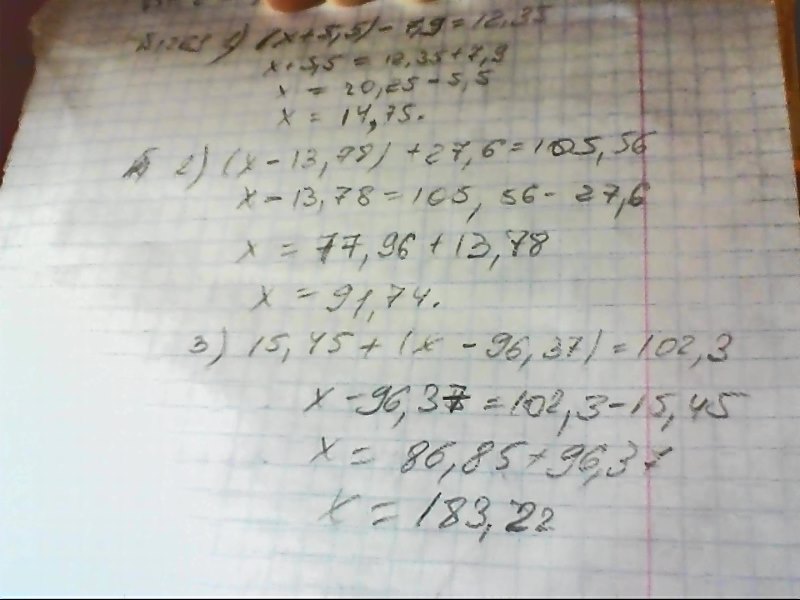 1) (x+5,5) - 7,9 = 12,35
x+5,5 = 12,35+7,9
x = 20,25 - 5,5
x = 14,75.
2) (x - 13,78) + 27,6 = 105,56
x - 13,78 = 105,56 - 27,6
x = 77,96 + 13,78
x = 91,74.
3) 15,45 + (x - 96,37) = 102,3
x - 96,37 = 102,3 - 15,45
x = 86,85 + 96,37
x = 183,22